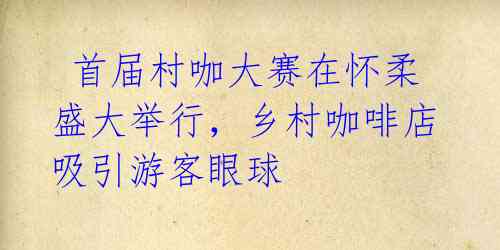 首届村咖大赛在怀柔
盛大举行，乡村咖啡店
吸引游客眼球